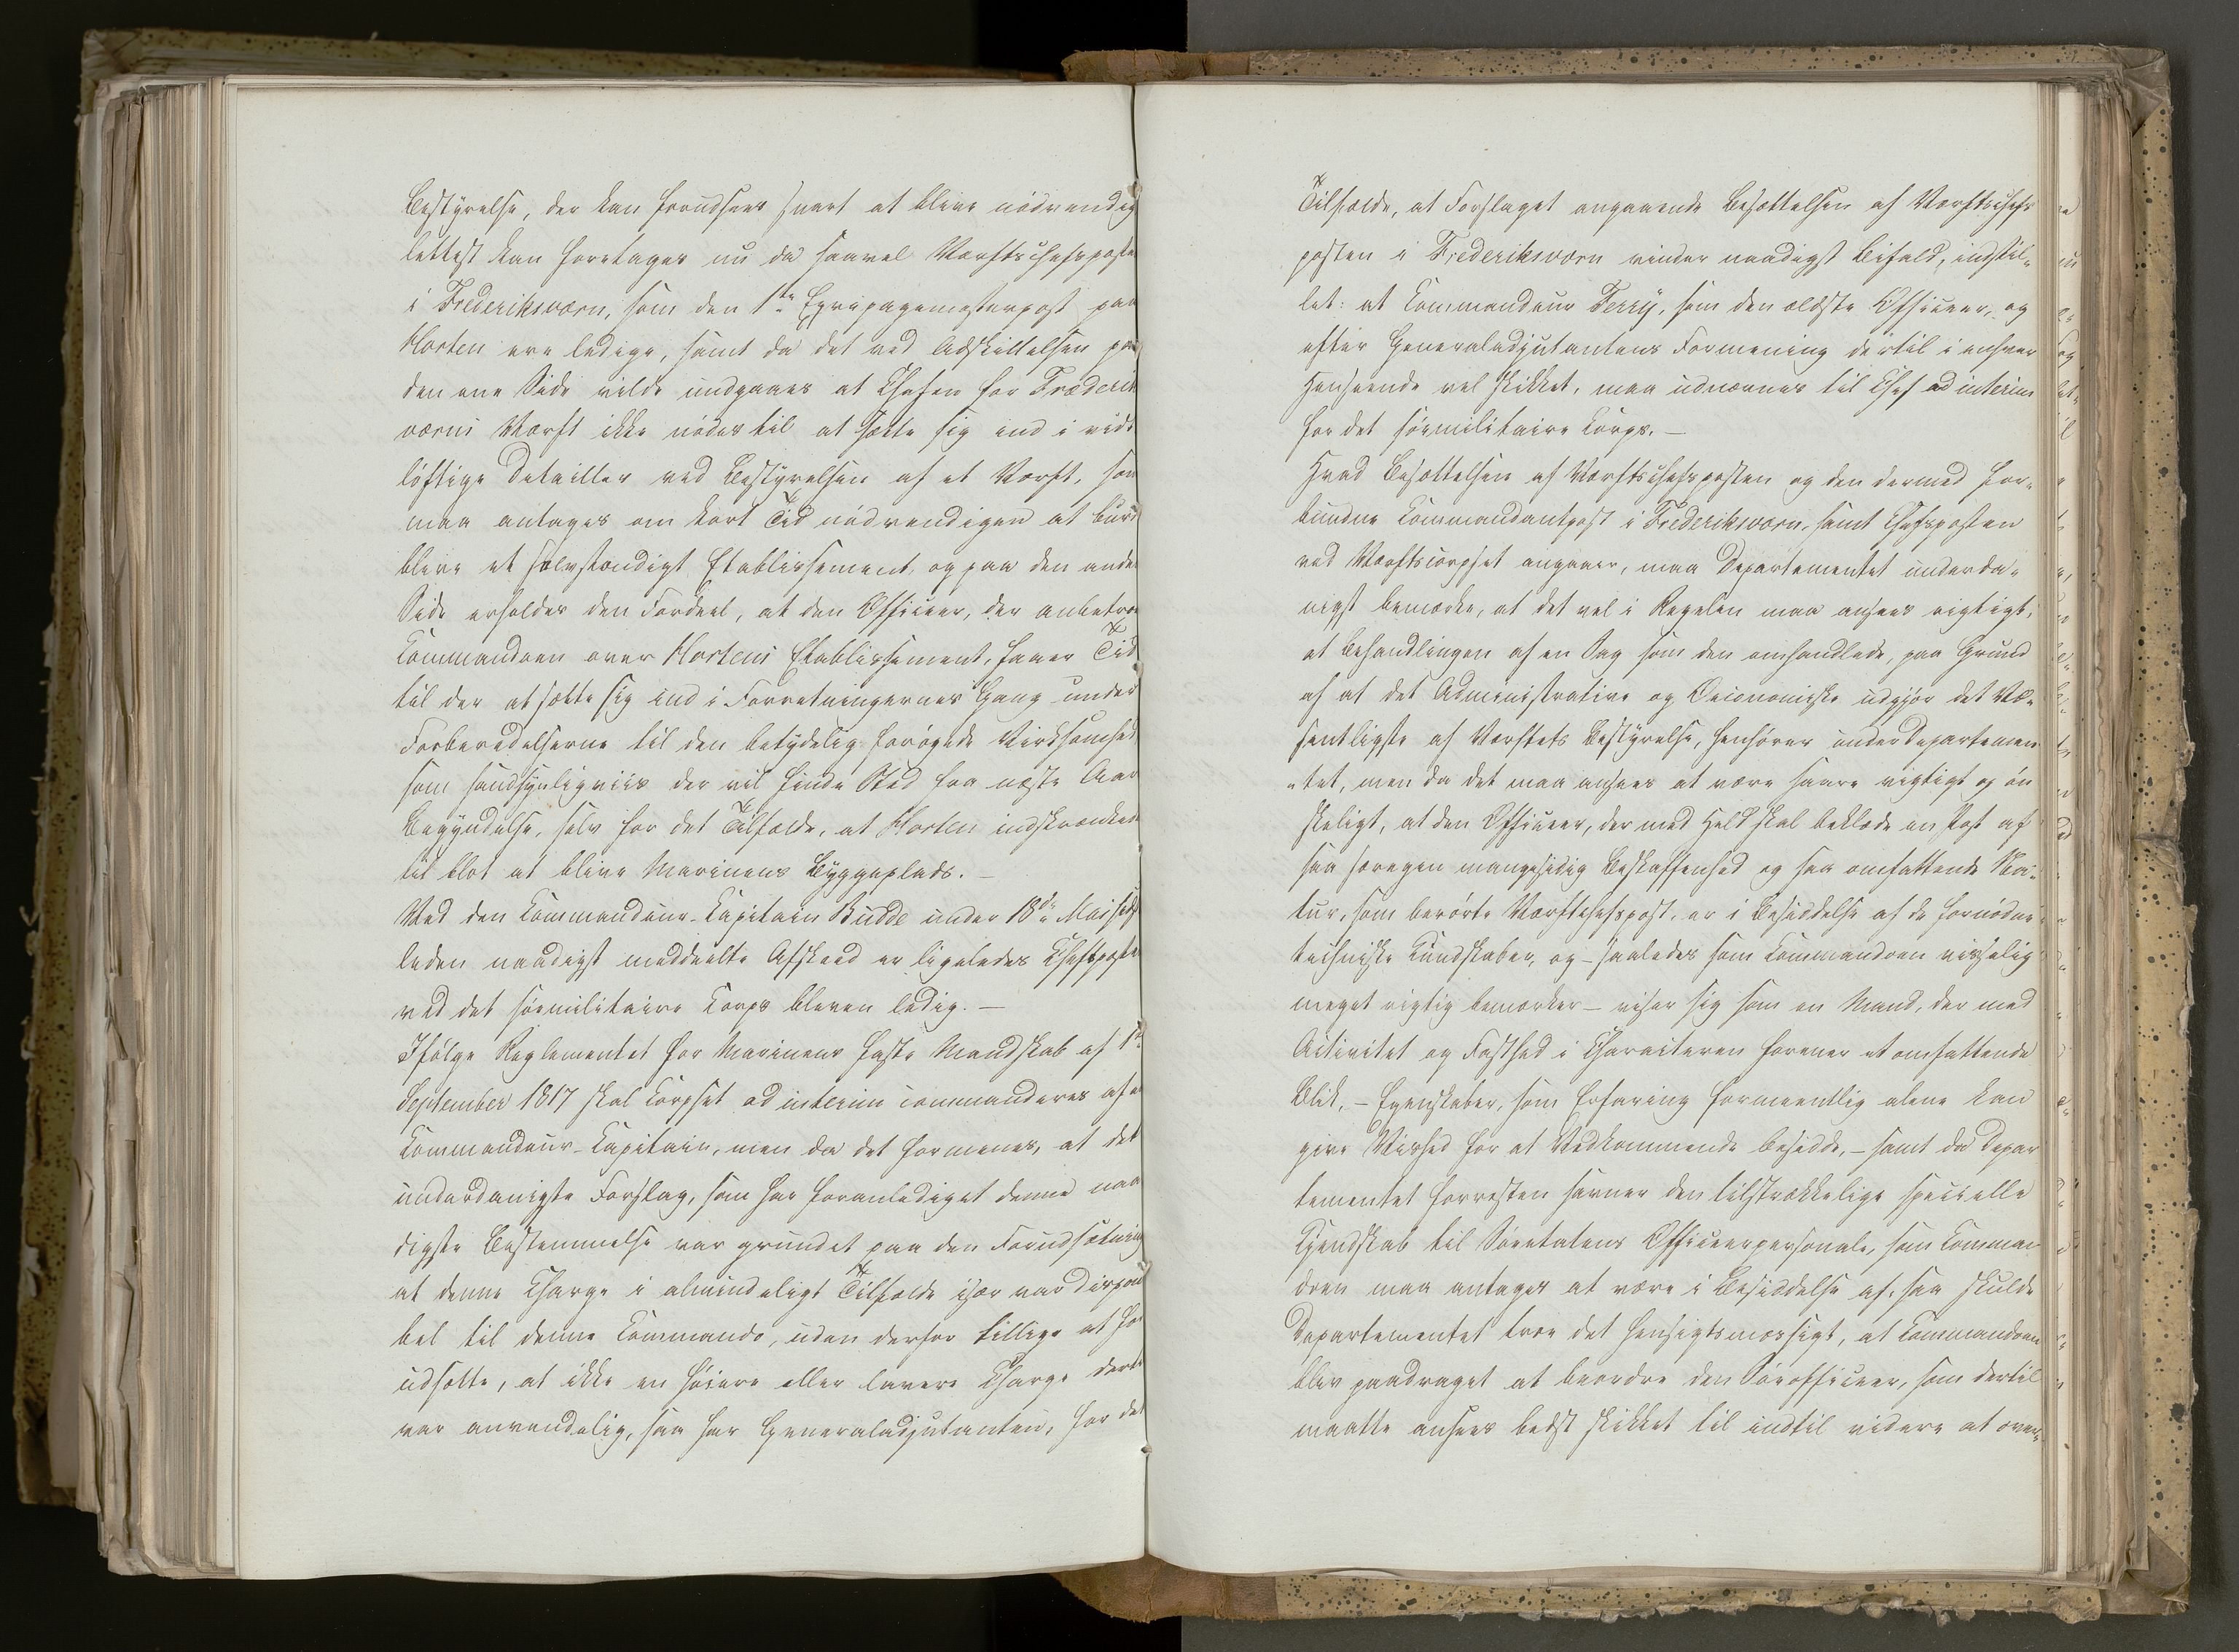 Bestyrelse, der kan forudsees snart at blive nödvendig
lettest kan foretages nu da saavel Værftschefsposte
i Frederiksværn, som den 1ste Eqvipagemesterpost paa
Horten ere ledige, samt da det ved Adskillelsen paa
den ene Side vilde undgaaes at Chefen for Frederik
værns Værft ikke nödes til at sætte sig ind i vidt
löftige Detailler ved Bestyrelsen af et Værft, som
maa antages om kort Tid nödvendigen at burde
blive et selvstændigt Etablissement, og paa den anden
Side erholdes den Fordeel, at den Officeer, der anbetroes
Commandoen over Hortens Etablissement, faaer Tid
til der at sætte sig ind i Forretningernes Gang under
Forberedelserne til den betydelig forögede Virksomhed
som sandsynligviis der vil finde Sted fra næste Aars
Begyndelse, selv for det Tilfælde, at Horten indskrænkes
til blot at blive Marinens Byggeplads. —
Ved den Commandeur-Capitain Budde under 18de Mai sidst
leden naadigst meddeelte Afskeed er ligeledes Chefsposten
ved det söemilitaire Corps bleven ledig. —
Ifölge Reglementet for Marinens faste Mandskab af 1ste
September 1817 skal Corpset ad interim commanderes af en
Commandeur-Capitain, men da det formenes, at det
underdanigste Forslag, som har foranlediget denne naa
digste Bestemmelse var grundet paa den Forudsætning
at denne Charge i almindeligt Tilfælde især var dispon
bel til denne Commando, uden derfor tillige at for
udsætte, at ikke en höiere eller lavere Charge dertil
var anvendelig, saa har Generaladjutanten, for det
Tilfælde, at Forslaget angaaende Besættelsen af Værftschefs
posten i Frederiksværn vinder naadigst Bifald, indstil-
let: at Commandeur Ferry, som den ældste Officeer, og
efter Generaladjutantens Formening dertil i enhver
Henseende vel skikket, maa udnævnes til Chef ad interim
for det söemilitaire Corps. —
Hvad Besættelsen af Værftschefsposten og den dermed for-
bundne Commandantpost i Frederiksværn, samt Chefsposten
ved Værftscorpset angaaer, maa Departementet underda-
nigst bemærke, at det vel i Regelen maa ansees rigtigt,
at Behandlingen af en Sag som den omhandlede, paa Grund
af at det Administrative og Oeconomiske udgjör det Væ-
sentligste af Værftets Bestyrelse, henhörer under Departemen
-tet, men da det maa ansees at være saare vigtigt og ön
skeligt, at den Officeer, der med Held skal beklæde en Post af
saa særegen mangesidig Beskaffenhed og saa omfattende Na-
tur, som berörte Værftschefspost, er i Besiddelse af de fornödne
techniske Kundskaber, og — saaledes som Commandoen visselig
meget rigtig bemærker — viser sig som en Mand, der med
Activitet og Fasthed i Characteren forener et omfattende
Blik, — Egenskaber, som Erfaring formeentlig alene kan
give Vished for at Vedkommende besidde, — samt da Depar
tementet forresten savner den tilstrækkelige specielle
Kjendskab til Söeetatens Officeerpersonale, som Comman
doen maa antages at være i Besiddelse af, saa skulde
Departementet troe det hensigtsmæssigt, at Commandoen
blev paadraget at beordre den Söeofficeer, som dertil
maatte ansees bedst skikket til indtil videre at over-